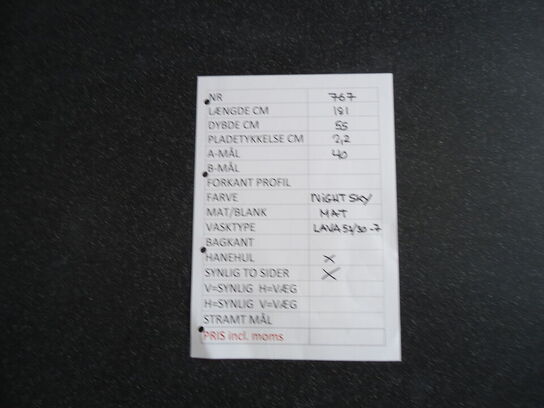 NR 767
LÆNGDE CM 191
DYBDE CM 55
PLADETYKKELSE CM 2,2
A-MÅL 40
B-MÅL
FORKANT PROFIL
FARVE NIGHT SKY
MAT/BLANK MAT
VASKTYPE LAVA 51/30-7
BAGKANT
HANEHUL X
SYNLIG TO SIDER X
V=SYNLIG H=VÆG
H=SYNLIG V=VÆG
STRAMT MÅL
PRIS incl. moms